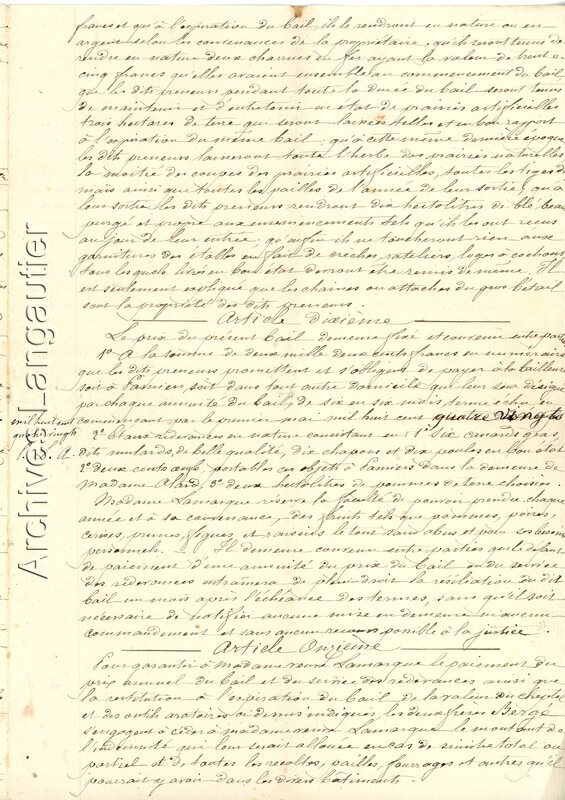 francs et qu'à l'expiration du bail, ils le rendront en nature ou en
argent selon les convenances de la propriétaire, qu'ils seront tenus de
rendre en nature deux charrues en fer ayant la valeur de trente
cinq francs qu'elles avaient ensemble au commencement du bail
que les dits preneurs pendant toute la durée du bail seront tenus
de maintenir et d'entretenir en état de prairies artificielles
trois hectares de terre qui seront laissées telles et en bon rapport
à l'expiration du même bail; qu'à cette même dernière époque
les dits preneurs laisseront toute l'herbe des prairies naturelles
la moitié des coupes des prairies artificielles, toutes les tiges de
maïs ainsi que toutes les pailles de l'année de leur sortie; qu'à
leur sortie les dits preneurs rendront dix hectolitres de blé, beau
purgé et propre aux ensemencements tels qu'ils les ont reçus
au jour de leur entrée; qu'enfin ils ne toucheront rien aux
garnitures des étables en fait de crèches, rateliers, loges à cochons
tous lesquels livrés en bon état devront être remis de même. Il
est seulement expliqué que les chaînes ou attaches du gros bétail
sont la propriété des dits preneurs.
Article dixième
Le prix du présent bail demeure fixé et convenu entre parties
1° A la somme de deux mille deux cents francs en numéraire
que les dits preneurs promettent et s'obligent de payer à la bailleuse
soit à Pamiers, soit dans tout autre domicile qui leur sera désigné
par chaque annuité du bail, de six en six mois, terme échu en
commençant par le premier mai mil huit cent quatre vingts
mil huit cent
quatre vingts
2° Et aux redevances en nature consistant en: 1° six canards gras,
dits mulards, de belle qualité, dix chapons et dix poules en bon état
2° deux cents œufs, portables ces objets à Pamiers dans la demeure de
Madame 3° deux hectolitres de pommes de terre choisies.
Madame Lamarque réserve la faculté de pouvoir prendre chaque
année et à sa convenance, des fruits tels que pommes, poires,
cerises, prunes, figues, et raisins le tout sans abus et pour ses besoins
personnels. Il demeure convenu entre parties que le défaut
de paiement d'une annuité du prix du bail ou du service
des redevances entraînera de plein droit la résiliation du dit
bail un mois après l'échéance des termes, sans qu'il soit
nécessaire de notifier aucune mise en demeure ni aucun
commandement et sans aucun recours possible à la justice.
Article Onzième
Pour garantir à Madame veuve Lamarque le paiement du
prix annuel du bail et du service des redevances ainsi que
la restitution à l'expiration du bail de la valeur du cheptel
et des outils aratoires ci dessus indiqués, les deux frères Bergé
s'engagent à céder à madame veuve Lamarque le montant de
l'indemnité qui leur serait allouée en cas de sinistre total ou
partiel et de toutes les récoltes, pailles, fourrages et autres qu'il
pourrait y avoir dans les divers bâtiments.
Archives Langautier